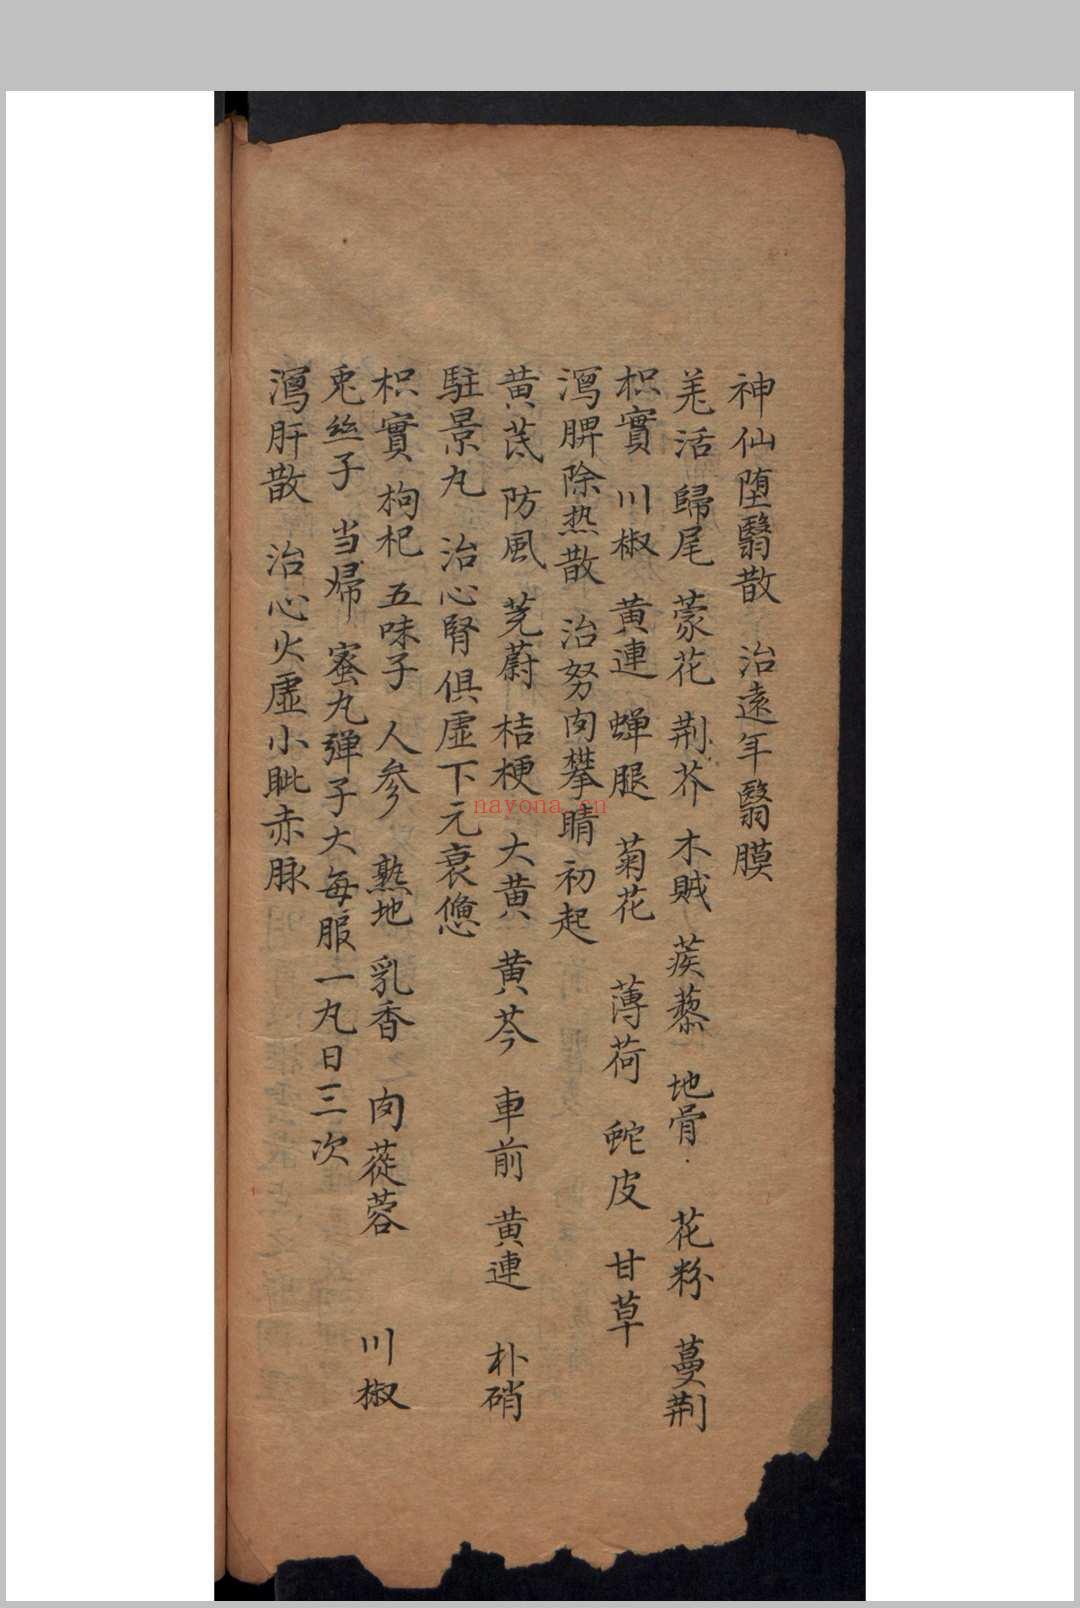 神仙堕翳散 治遠年翳膜
羌活 歸尾 蒙花 荆芥 木賊 蒺藜 地骨 花粉 蔓荆
枳實 川椒 黄連 蟬腿 菊花 薄荷 蛇皮 甘草
瀉脾除热散 治努肉攀睛初起
黄芪 防風 茺蔚 桔梗 大黄 黄芩 車前 黄連 朴硝
駐景丸 治心腎俱虚下元衰憊
枳實 枸杞 五味子 人參 熟地 乳香 肉蓯蓉 川椒
兎丝子 当歸 蜜丸弹子大每服一丸日三次
瀉肝散 治心火虚小眦赤脉
nayona.cn